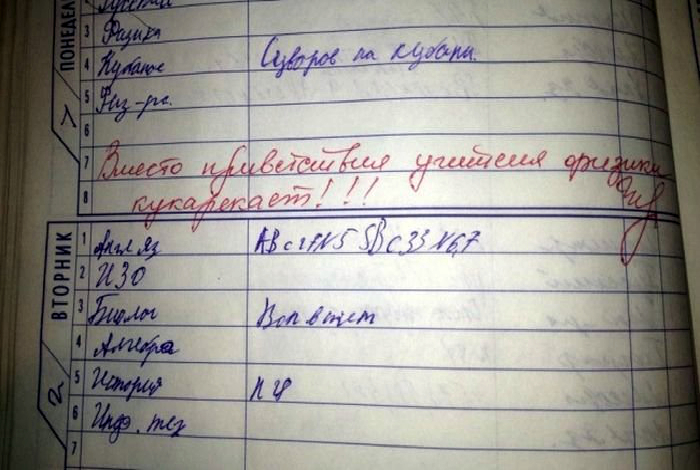 ПОНЕДЕЛ
Русский
3 Физика
4 Кубанов Суворов на кубани.
5 Физ-ра.
6
7 Вместо приветствия учителя физики
8 кукарекает!!!
ВТОРНИК
1 Англ яз
2 ИЗО
3 Биолог
4 Алгебра
5 История П 4
6 Инф. тех
7
2